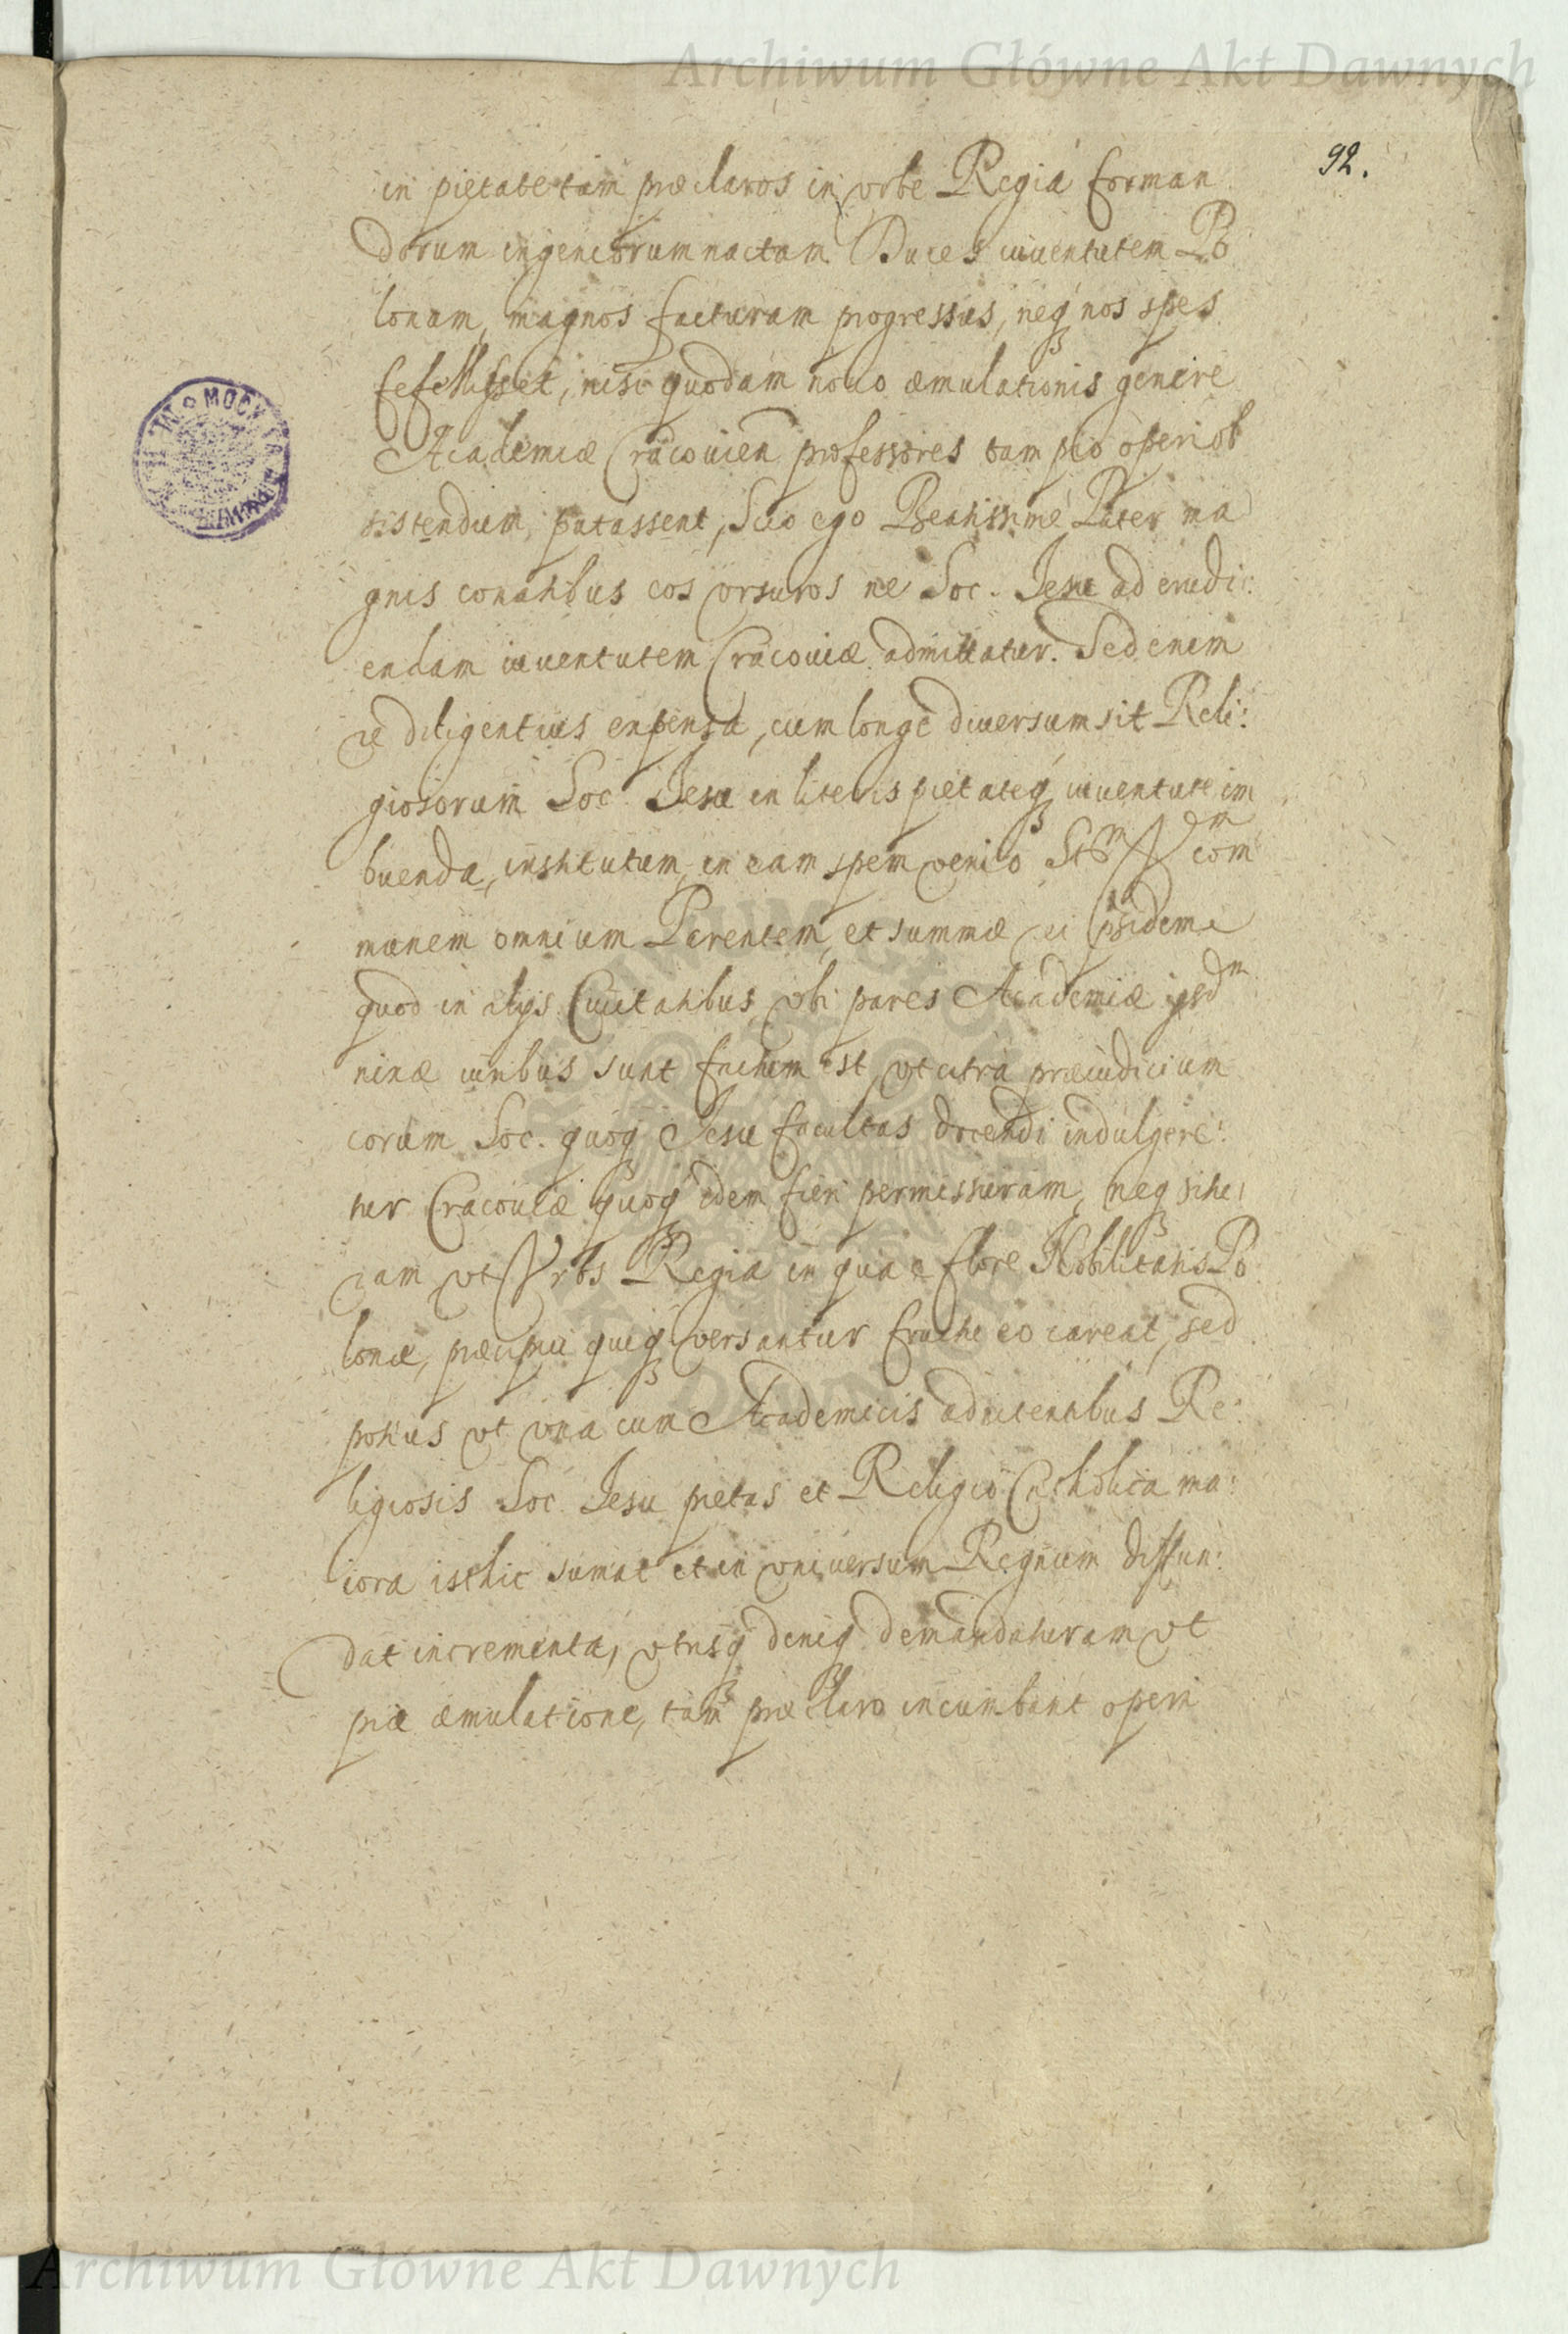 Archiwum Główne Akt Dawnych
92.
in pietate tam præclaros in vrbe Regiá forman
dorum ingeniorum nactam Duces iuuentutem Po
lonam, magnos facturam progressus, neq3 nos spes
fefellisset, nisi quodam nouo æmulationis genere
Academiæ Cracouien professores tam pio operi ob
sistendum putassent, Scio ego Beatissime Pater ma
gnis conatibus eos vrsuros ne Soc. Jesu ad erudi:
endam iuuentutem Cracouiæ admittatur. Sed enim
re diligentius expensa, cum longe diuersum sit Reli:
giosorum Soc. Jesu in literis pietateq3 iuuentute im
buenda, institutum, in eam spem venio Stem Vram com
munem omnium Parentem, et summæ ei
quod in alijs Ciuitatibus, vbi pares Academiæ ijsdm
iuribus sunt factum est, vt citra præiudicium
eorum Soc. quoq3 Jesu facultas docendi indulgere:
tur Cracouiæ quoq3 idem fieri permissuram, neq3
vt Vrbs Regia in qua e flore Nobilitatis Po
loniæ, præcipui quiq3 versantur fructu eo careat, sed
potius vt vna cum Academicis adnitentibus Re:
ligiosis Soc. Jesu pietas et Religio Catholica ma:
iora isthic sumat et in vniuersum Regnum diffun:
dat incrementa, vtrisq3 deniq3 demandaturam vt
piæ æmulatione, tam præclaro incumbant operi
Archiwum Główne Akt Dawnych